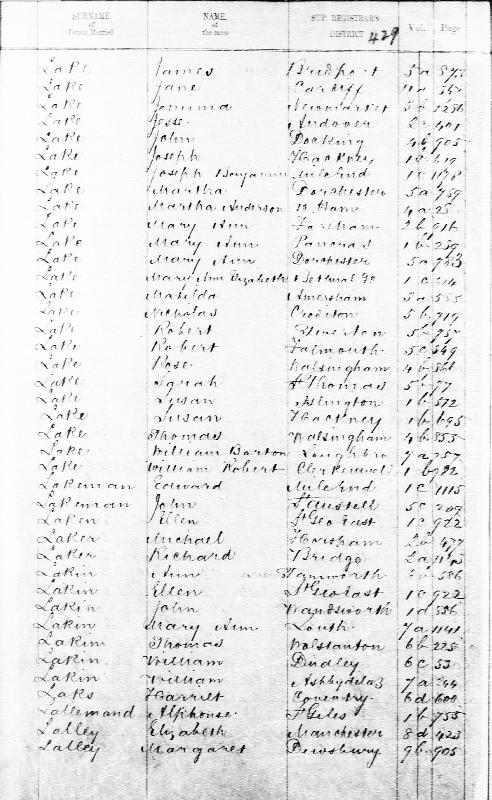 SURNAME of Person Married NAME, of the same SUP. REGISTRAR'S DISTRICT 429 Vol. Page
Lake James Bridport 5a
Lake Jane Cardiff 11a
Lake Jemima Newmarket 3b 1286
Lake Jesse Andover 2c 401
Lake John Docking 4b 905
Lake Joseph Hackney 1b 619
Lake Joseph Benjamin Mile End 1c 1178
Lake Martha Dorchester 5a 759
Lake Martha Anderson W. Ham 4a 25
Lake Mary Ann Fareham 2b 916
Lake Mary Ann Pancras 1b 239
Lake Mary Ann Dorchester 5a
Lake Mary Ann Elizabeth Bethnal Gn 1c
Lake Matilda Amersham 3a 555
Lake Nicholas Crediton 5b 719
Lake Robert Tiverton 5b 737
Lake Robert Falmouth 5c 349
Lake Rose Walsingham 4b 866
Lake Sarah St Thomas 5b 77
Lake Susan Islington 1b 572
Lake Susan Hackney 1b 695
Lake Thomas Walsingham 4b 853
Lake William Barton Loughbro 7a 257
Lake William Robert Clerkenwell 1b 982
Lakeman Edward Mile End 1c 1115
Lakeman John St Austell 5c 209
Laken Ellen St Geo East 1c 922
Laker Michael Horsham 2b 477
Laker Richard Bridge 2a
Lakin Ann Tamworth 6b 586
Lakin Ellen St Geo East 1c 922
Lakin John Wandsworth 1d 886
Lakin Mary Ann Louth 7a 1141
Lakin Thomas Wolstanton 6b 225
Lakin William Dudley 6c 53
Lakin William Ashbydelaz 7a 244
Laks Harriet Coventry 6d 600
Lallemand Alphouse St Giles 1b 755
Lalley Elizabeth Manchester 8d 423
Lalley Margaret Dewsbury 9b 905